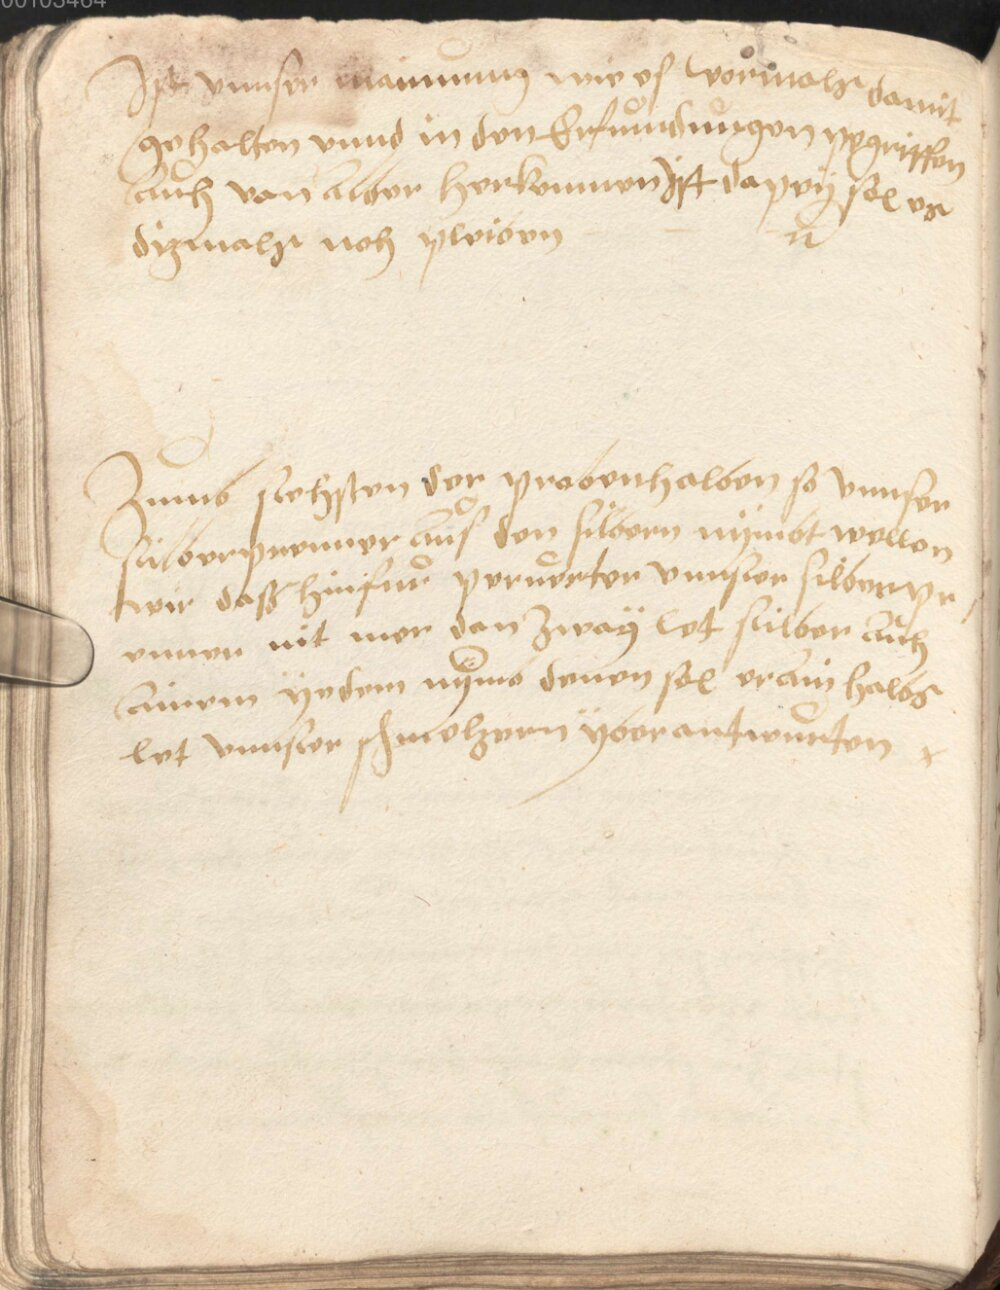 00105464
Ist vnnser mainnung wie es vormalß damit
gehalten vnnd in den Erfundungen pegriffen
auch van alter herkommen ist dapey sol es
dizmals noch pleiben
Zumb sechsten der probenhalben so vnnser
silberprenner aus den silbern nymbt wellen
wir daß hinfur perurter vnnser silberpr
enner nit mer dan zway lot silber auch
ainem yedem nymb denen sol er ain halbs
lot vnnser schmelzern yberantwurten